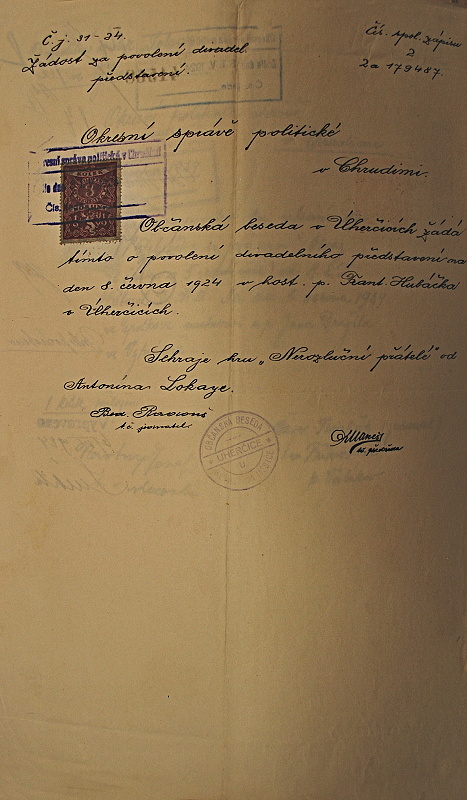 Č. j. 31-24.
Žádost za povolení divadel.
představení.
Čís. spol. zápisu
2
2a 179487.
Okresní správě politické
v Chrudimi.
Občanská beseda v Úherčicích žádá
tímto o povolení divadelního představení na
den 8. června 1924 v host. p. Frant. Hubáčka
v Úherčicích.
Sehraje hru „Nerozluční přátelé" od
Antonína Lokaye.
Bed.
t. č. jednatel.
OBČANSKÁ BESEDA
ÚHERČICE
t. č. předseda